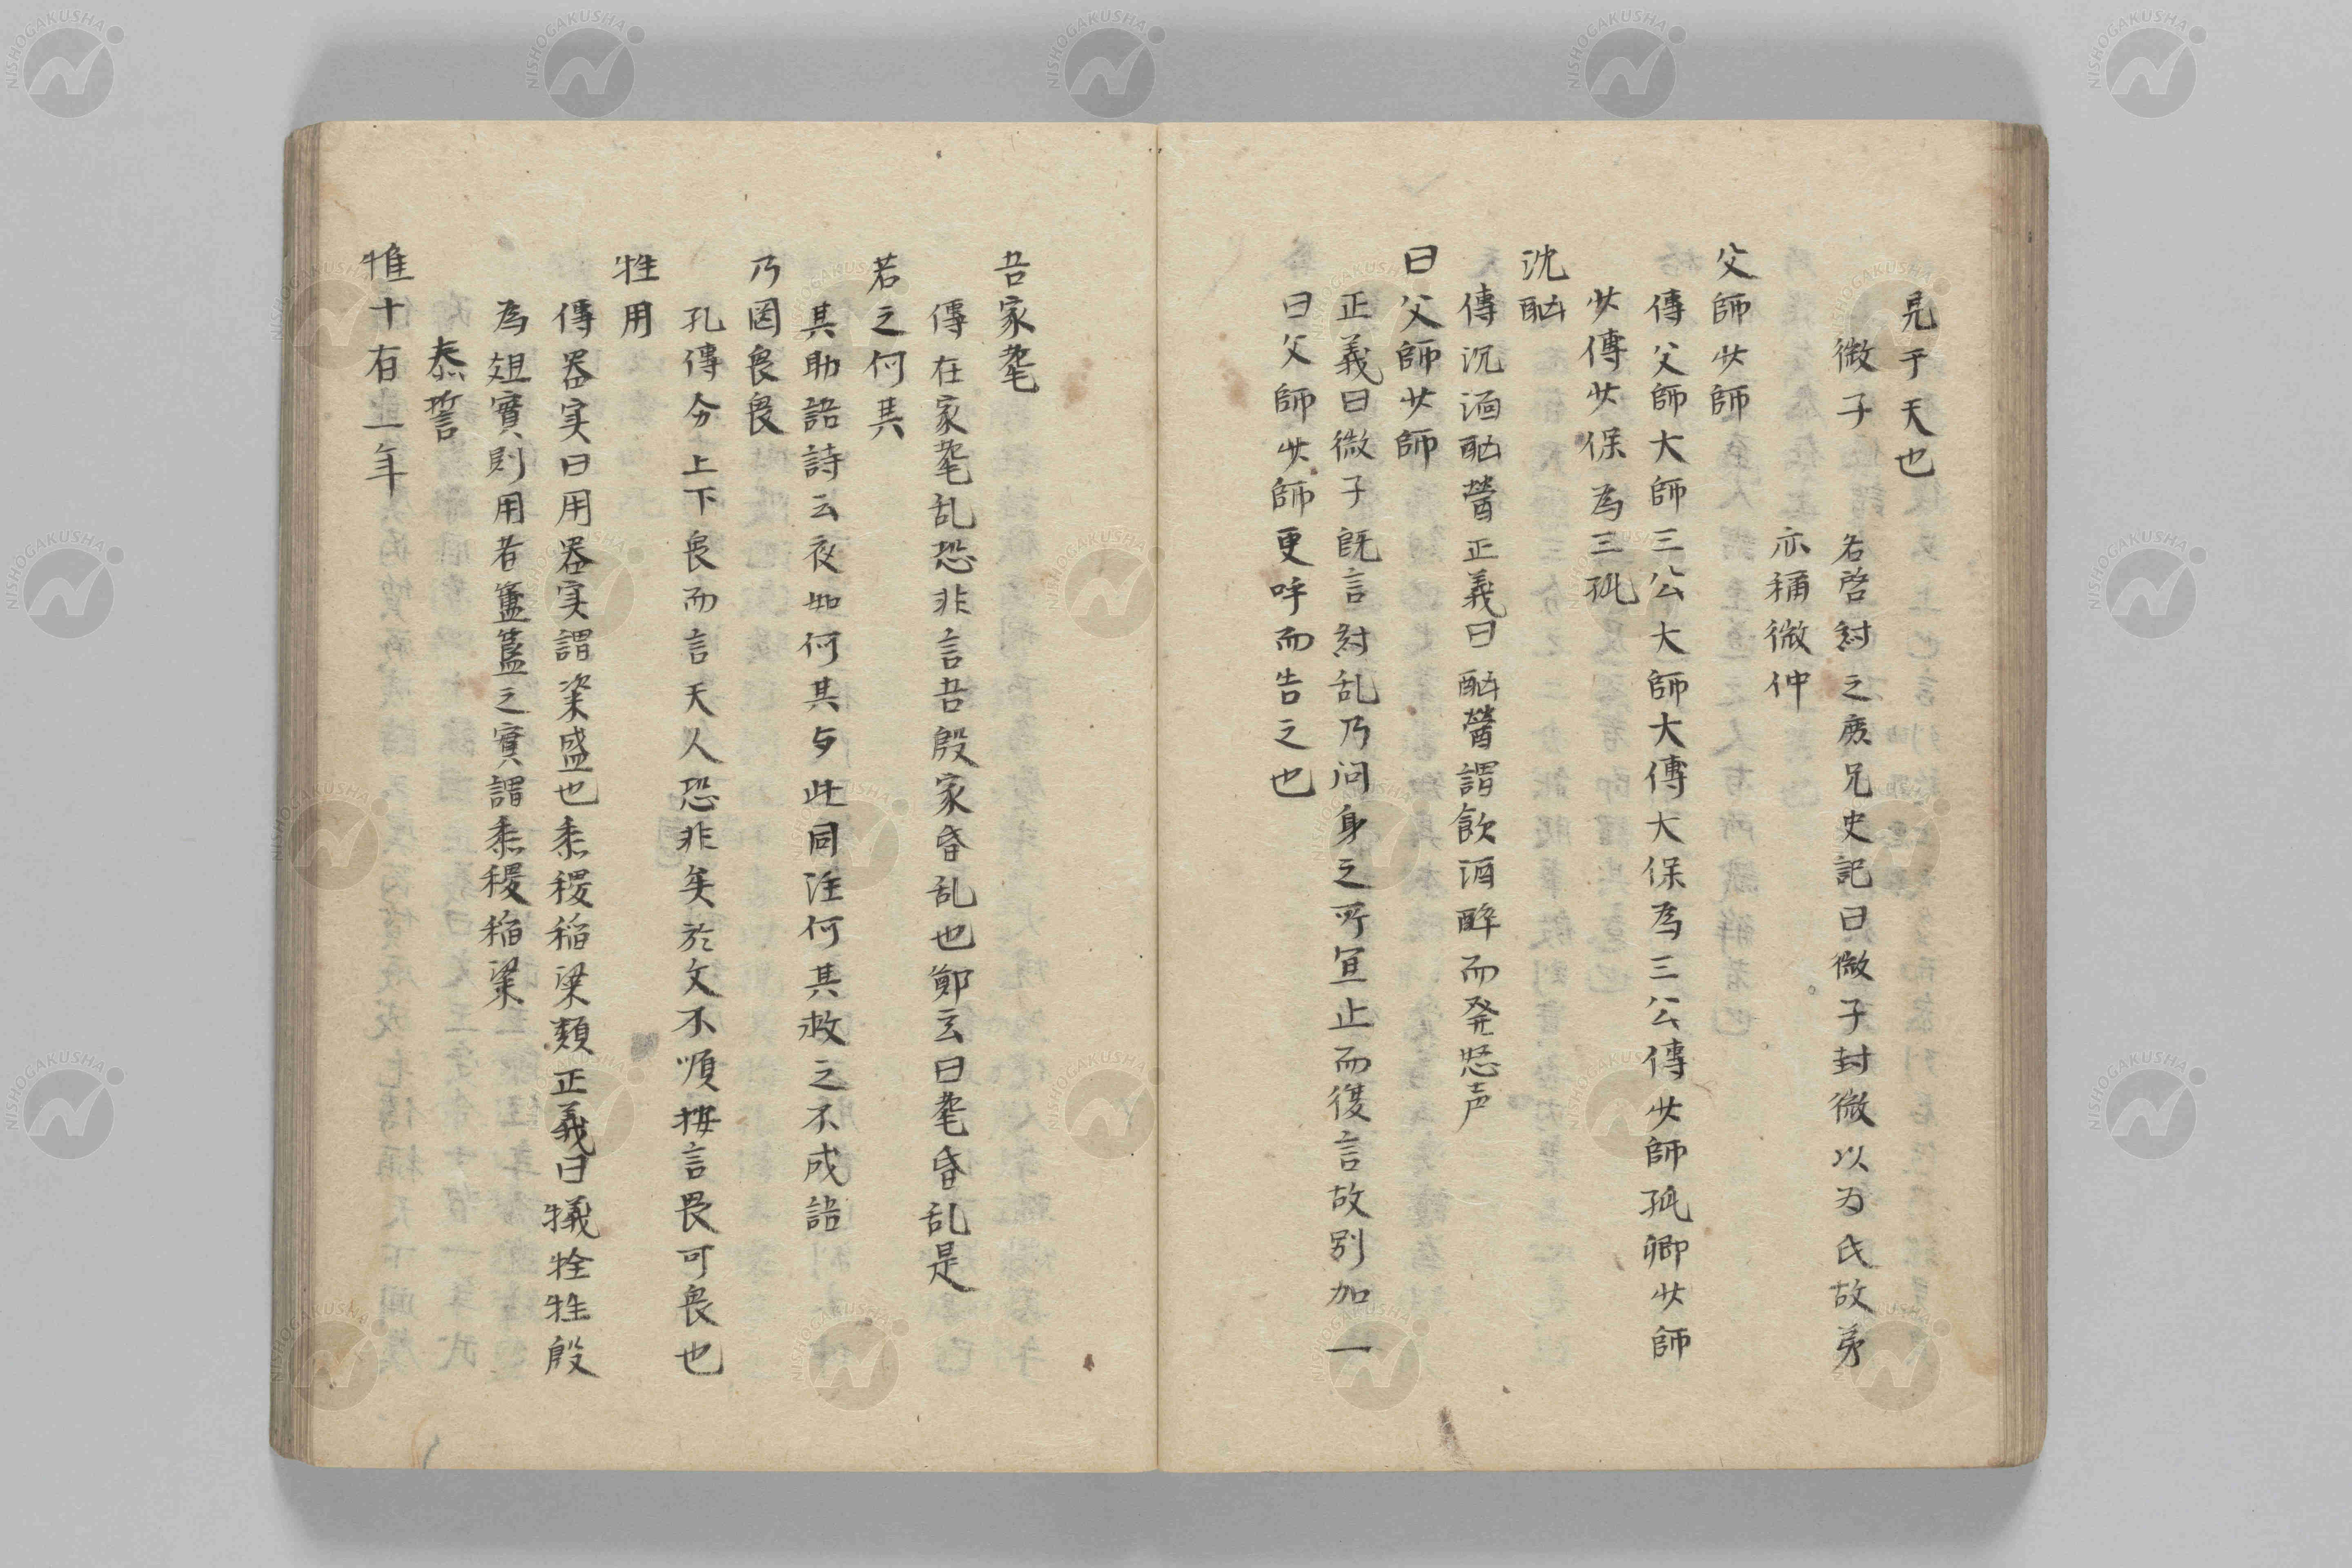 見于天也
微子　名啓紂之庶兄史記曰微子封微以为氏故弟
亦稱微仲
父師少師
傳父師大師三公大師大傳大保為三公傳少師孤卿少師
少傳少保為三孤
沈酗
傳沉酒酗醟正義曰酗醟謂飲酒醉而発怒声
曰父師少師
正義曰微子既言紂乱乃问身之所宜止而復言故别加一
曰父師少師更呼而告之也
吾家耄
傳在家耄乱恐非言吾殷家昏乱也鄭玄曰耄昏乱是
若之何其
其助語詩云夜如何其与此同注何其救之不成語
乃罔畏畏
孔傳分上下畏而言天人恐非矣於文不順按言畏可畏也
牲用
傳器実曰用器実謂粢盛也黍稷稲粱類正義曰犠牷牲殷
為俎實則用者簠簋之實謂黍稷稲粱
泰誓
惟十有三年
NISHOGAKUSHA